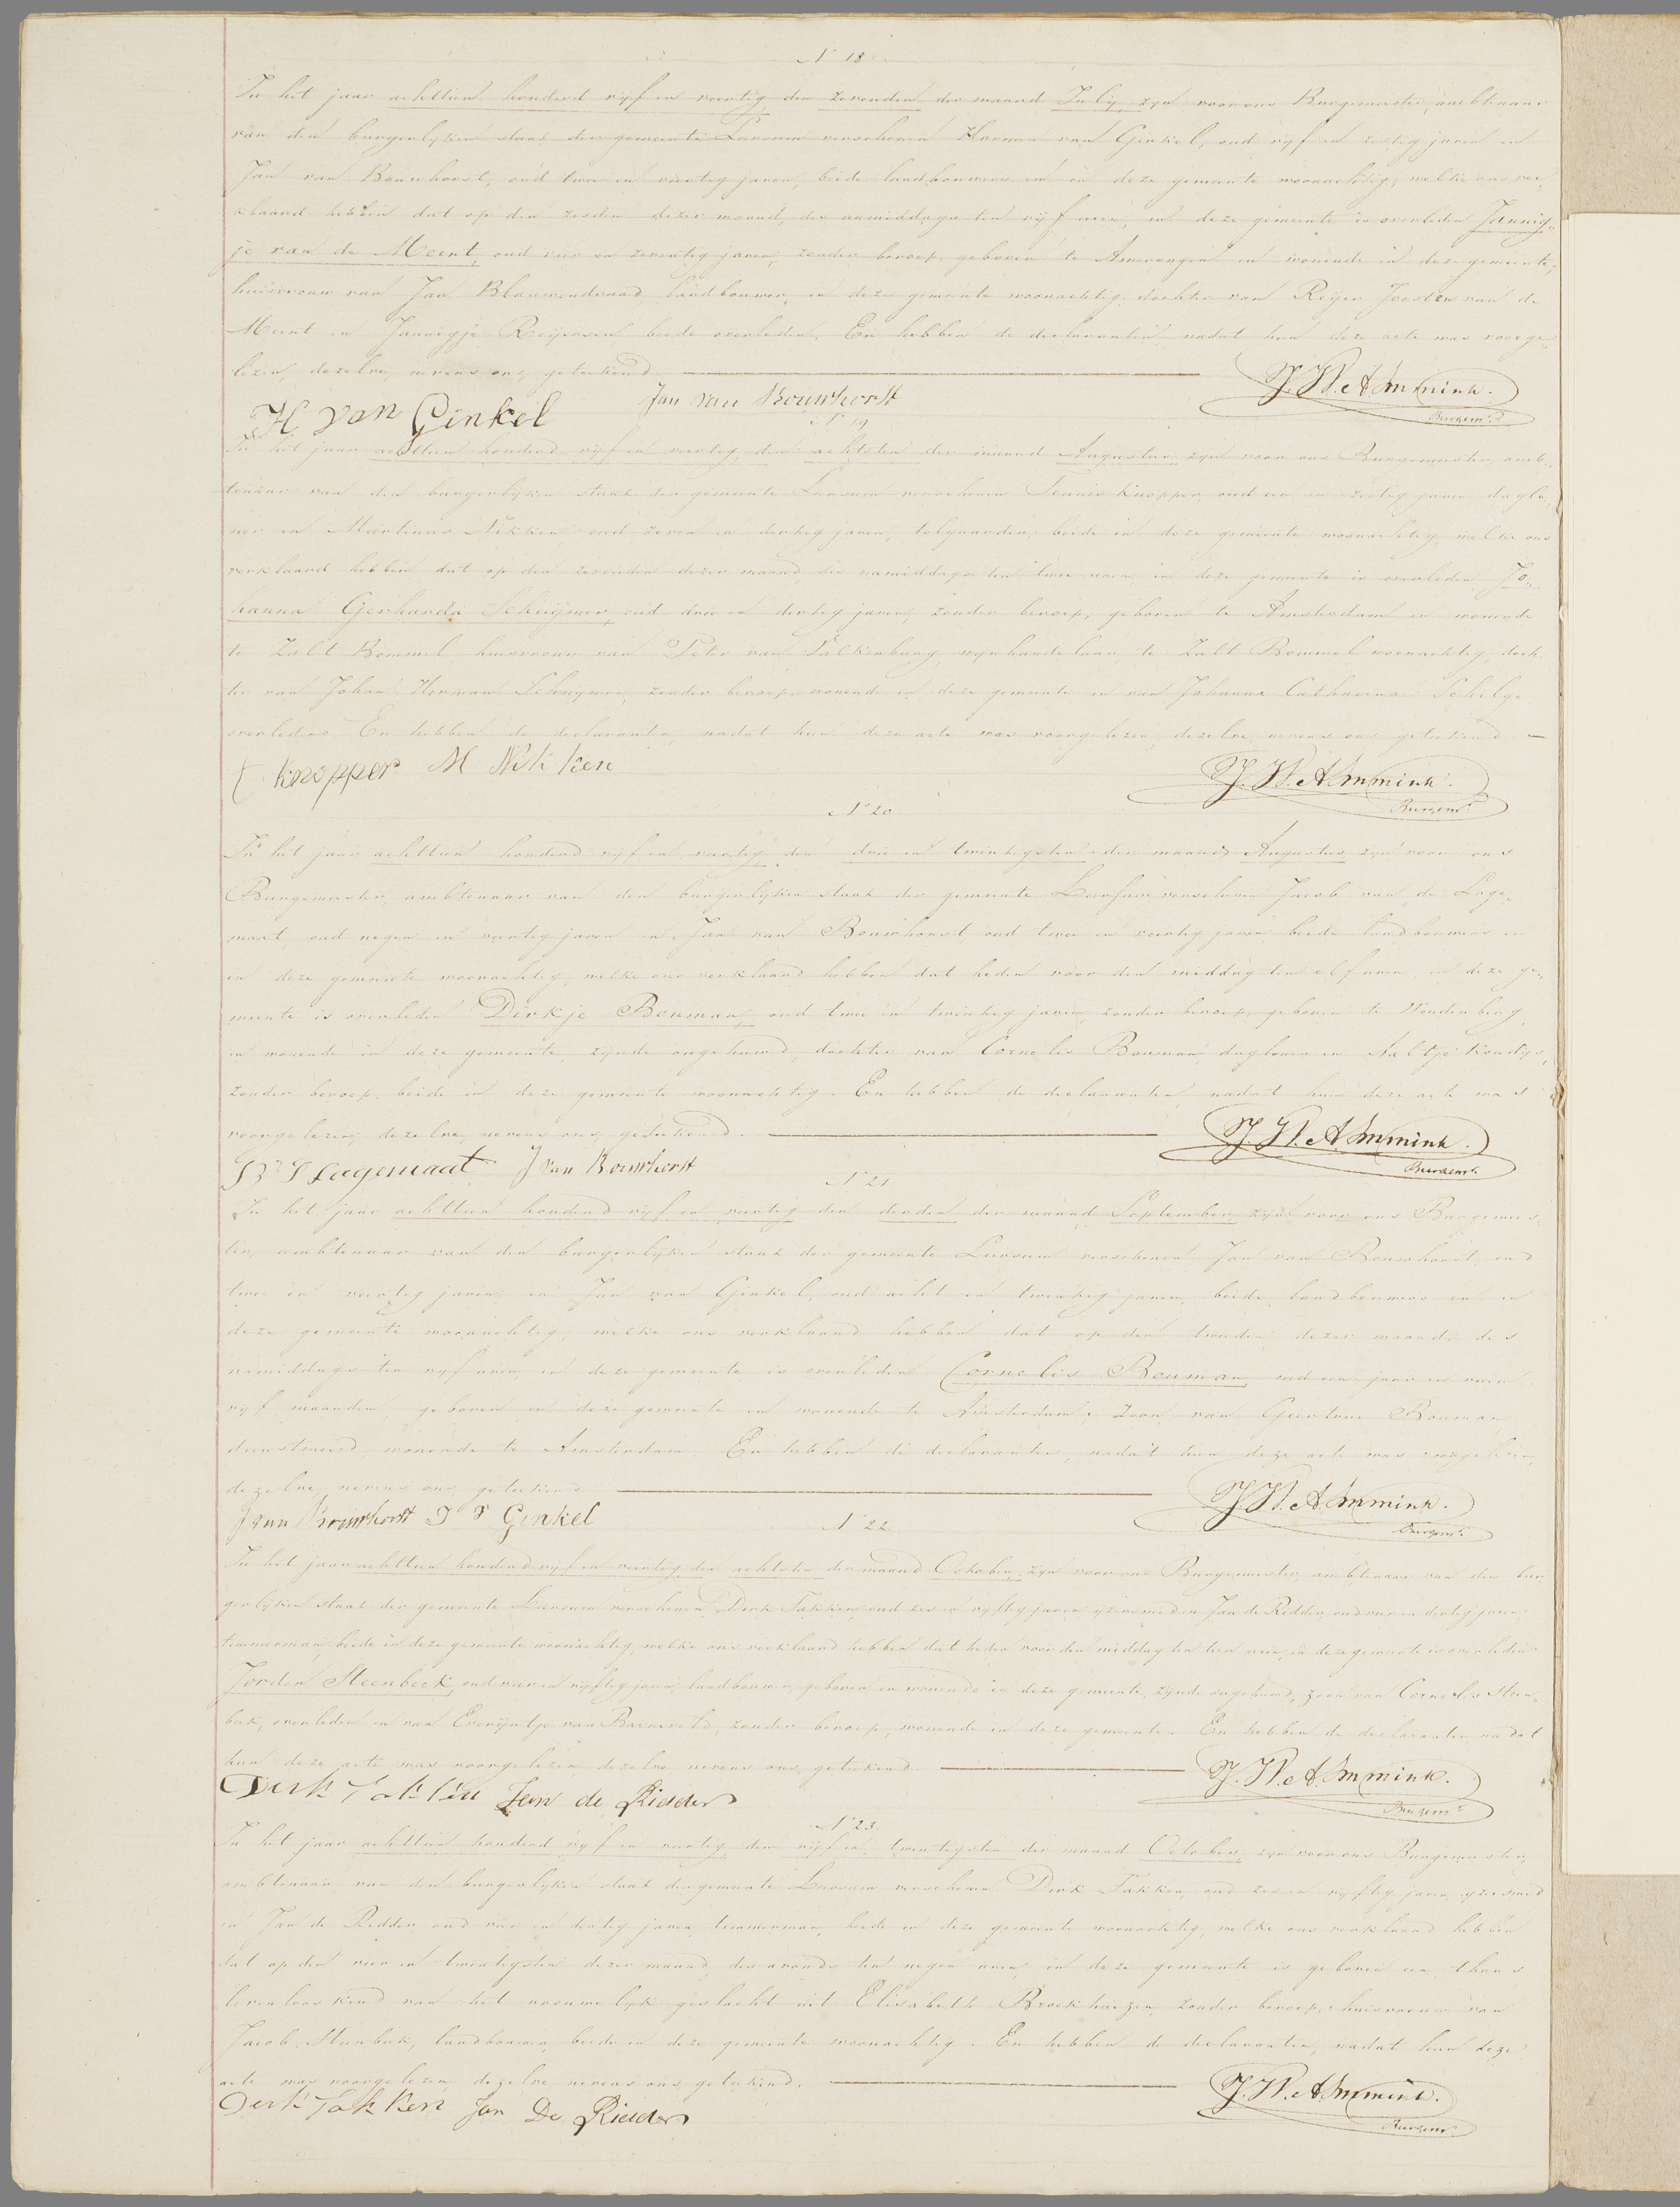 N 18
In het jaar achttien honderd vijf en veertig, den zevenden der maand Julij, zijn voor ons Burgemeester, ambtenaar
van den burgerlijken staat der gemeente Leersum verschenen Harmen van Ginkel, oud vijf en zestig jaren en
Jan van Bouwhorst, oud twee en veertig jaren, beide landbouwers en in deze gemeente woonachtig, welke ons ver-
klaard hebben dat op den zesden dezer maand, des namiddags ten vijf uren, in deze gemeente is overleden Jannig-
je van de Meent, oud vier en zeventig jaren, zonder beroep, geboren te Amerongen en wonende in deze gemeente,
huisvrouw van Jan Blauwendraad, landbouwer, in deze gemeente woonachtig, dochter van Reijer Joosten van de
Meent en Jannigje Reijersen beide overleden. En hebben de declaranten, nadat hun deze acte was voorge-
lezen, dezelve, nevens ons, geteekend.
H van Ginkel Jan van Bouwhorst J. W. Ammink. Burgemr.
N 19
In het jaar achttien honderd vijf en veertig, den achtsten der maand Augustus zijn voor ons Burgemeester, amb-
tenaar van den burgerlijken staat der gemeente Leersum verschenen Teunis Knopper, oud een en zestig jaren dagloo-
ner en Martinus Nekken oud zeven en dertig jaren, tolgaarder, beide in deze gemeente woonachtig, welke ons
verklaard hebben dat op den zevenden dezer maand des namiddags ten twee uren in deze gemeente is overleden Jo-
hanna Gerharda Schuijmer, oud drie en dertig jaren, zonder beroep, geboren te Amsterdam en wonende
te Zalt Bommel, huisvrouw van Peter van Valkenburg, wijnhandelaar, te Zalt Bommel woonachtig, doch
ter van Johan Herman Schuijmer, zonder beroep, wonende in deze gemeente en van Johanna Catharina
overleden. En hebben de declaranten, nadat hun deze acte was voorgelezen, dezelve, nevens ons geteekend.
t knopper M Nekken J. W. Ammink. Burgemr.
N 20
In het jaar achttien honderd vijf en veertig, den drie en twintigsten der maand Augustus zijn voor ons
Burgemeester, ambtenaar van den burgerlijken staat der gemeente Leersum verschenen Jacob van de Lage-
maat, oud negen en veertig jaren en Jan van Bouwhorst, oud twee en veertig jaren beide landbouwers en
in deze gemeente woonachtig, welke ons verklaard hebben dat heden voor den middag ten elf uren, in deze ge-
meente is overleden Dirkje Bouman, oud twee en twintig jaren, zonder beroep, geboren te Woudenberg,
en wonende in deze gemeente, zijnde ongehuwd, dochter van Cornelis Bouman, daglooner en Aaltje Kouly,
zonder beroep, beide in deze gemeente woonachtig. En hebben de declaranten, nadat hun deze acte was
voorgelezen, dezelve, nevens ons, geteekend.
Lagemaat J van Bouwhorst J. W. Ammink. Burgemr.
N 21
In het jaar achttien honderd vijf en veertig den derden der maand September, zijn voor ons Burgemees-
ter, ambtenaar van den burgerlijken staat der gemeente Leersum verschenen Jan van Bouwhorst, oud
twee en veertig jaren, en Jan van Ginkel, oud acht en twintig jaren, beide landbouwers en in
deze gemeente woonachtig, welke ons verklaard hebben dat op den tweeden dezer maand, des
namiddags ten vijf uren, in deze gemeente is overleden Cornelis Bouman, oud een jaar en
vijf maanden geboren in deze gemeente en wonende te Amsterdam, Zoon van Geertrui Bouman,
dienstmeid, wonende te Amsterdam. En hebben de declaranten, nadat hun deze acte was voorgelezen,
dezelve, nevens ons, geteekend.
J van Bouwhorst J v Ginkel J. W. Ammink. Burgemr.
N 22.
In het jaar achttien honderd vijf en veertig, den achtsten der maand October, zijn voor ons Burgemeester, ambtenaar van den bur-
gerlijken staat der gemeente Leersum verschenen Dirk Takken, oud zes en vijftig jaren ijzersmid en Jan de Ridder, oud vier en dertig jaren
timmerman, beide in deze gemeente woonachtig, welke ons verklaard hebben dat heden voor den middag ten tien uren, in deze gemeente is overleden
Jorden Steenbeek, oud vier en vijftig jaren, landbouwer, geboren en wonende in deze gemeente, zijnde ongehuwd, zoon van Cornelis Steen-
beek, overleden en van Everijntje van Barneveld, zonder beroep, wonende in deze gemeente. En hebben de declaranten nadat
hun deze acte was voorgelezen dezelve nevens ons, geteekend.
Dirk Takken Jan de Ridder J. W. Ammink. Burgemr.
N 23.
In het jaar achttien honderd vijf en veertig, den vijf en twintigsten der maand October, zijn voor ons Burgemeester,
ambtenaar van den burgerlijken staat der gemeente Leersum verschenen Dirk Takken, oud zes en vijftig jaren, ijzersmid
en Jan de Ridder, oud vier en dertig jaren, timmerman, beide in deze gemeente woonachtig, welke ons verklaard hebben
dat op den vier en twintigsten dezer maand, des avonds ten negen uren, in deze gemeente is geboren een thans
levenloos kind van het vrouwelijk geslacht uit Elisabeth Broekhuizen, zonder beroep, huisvrouw van
Jacob Steenbeek, landbouwer, beide in deze gemeente woonachtig. En hebben de declaranten, nadat hun deze
acte was voorgelezen, dezelve nevens ons, geteekend.
Dirk Takken Jan De Ridder J. W. Ammink. Burgemr.